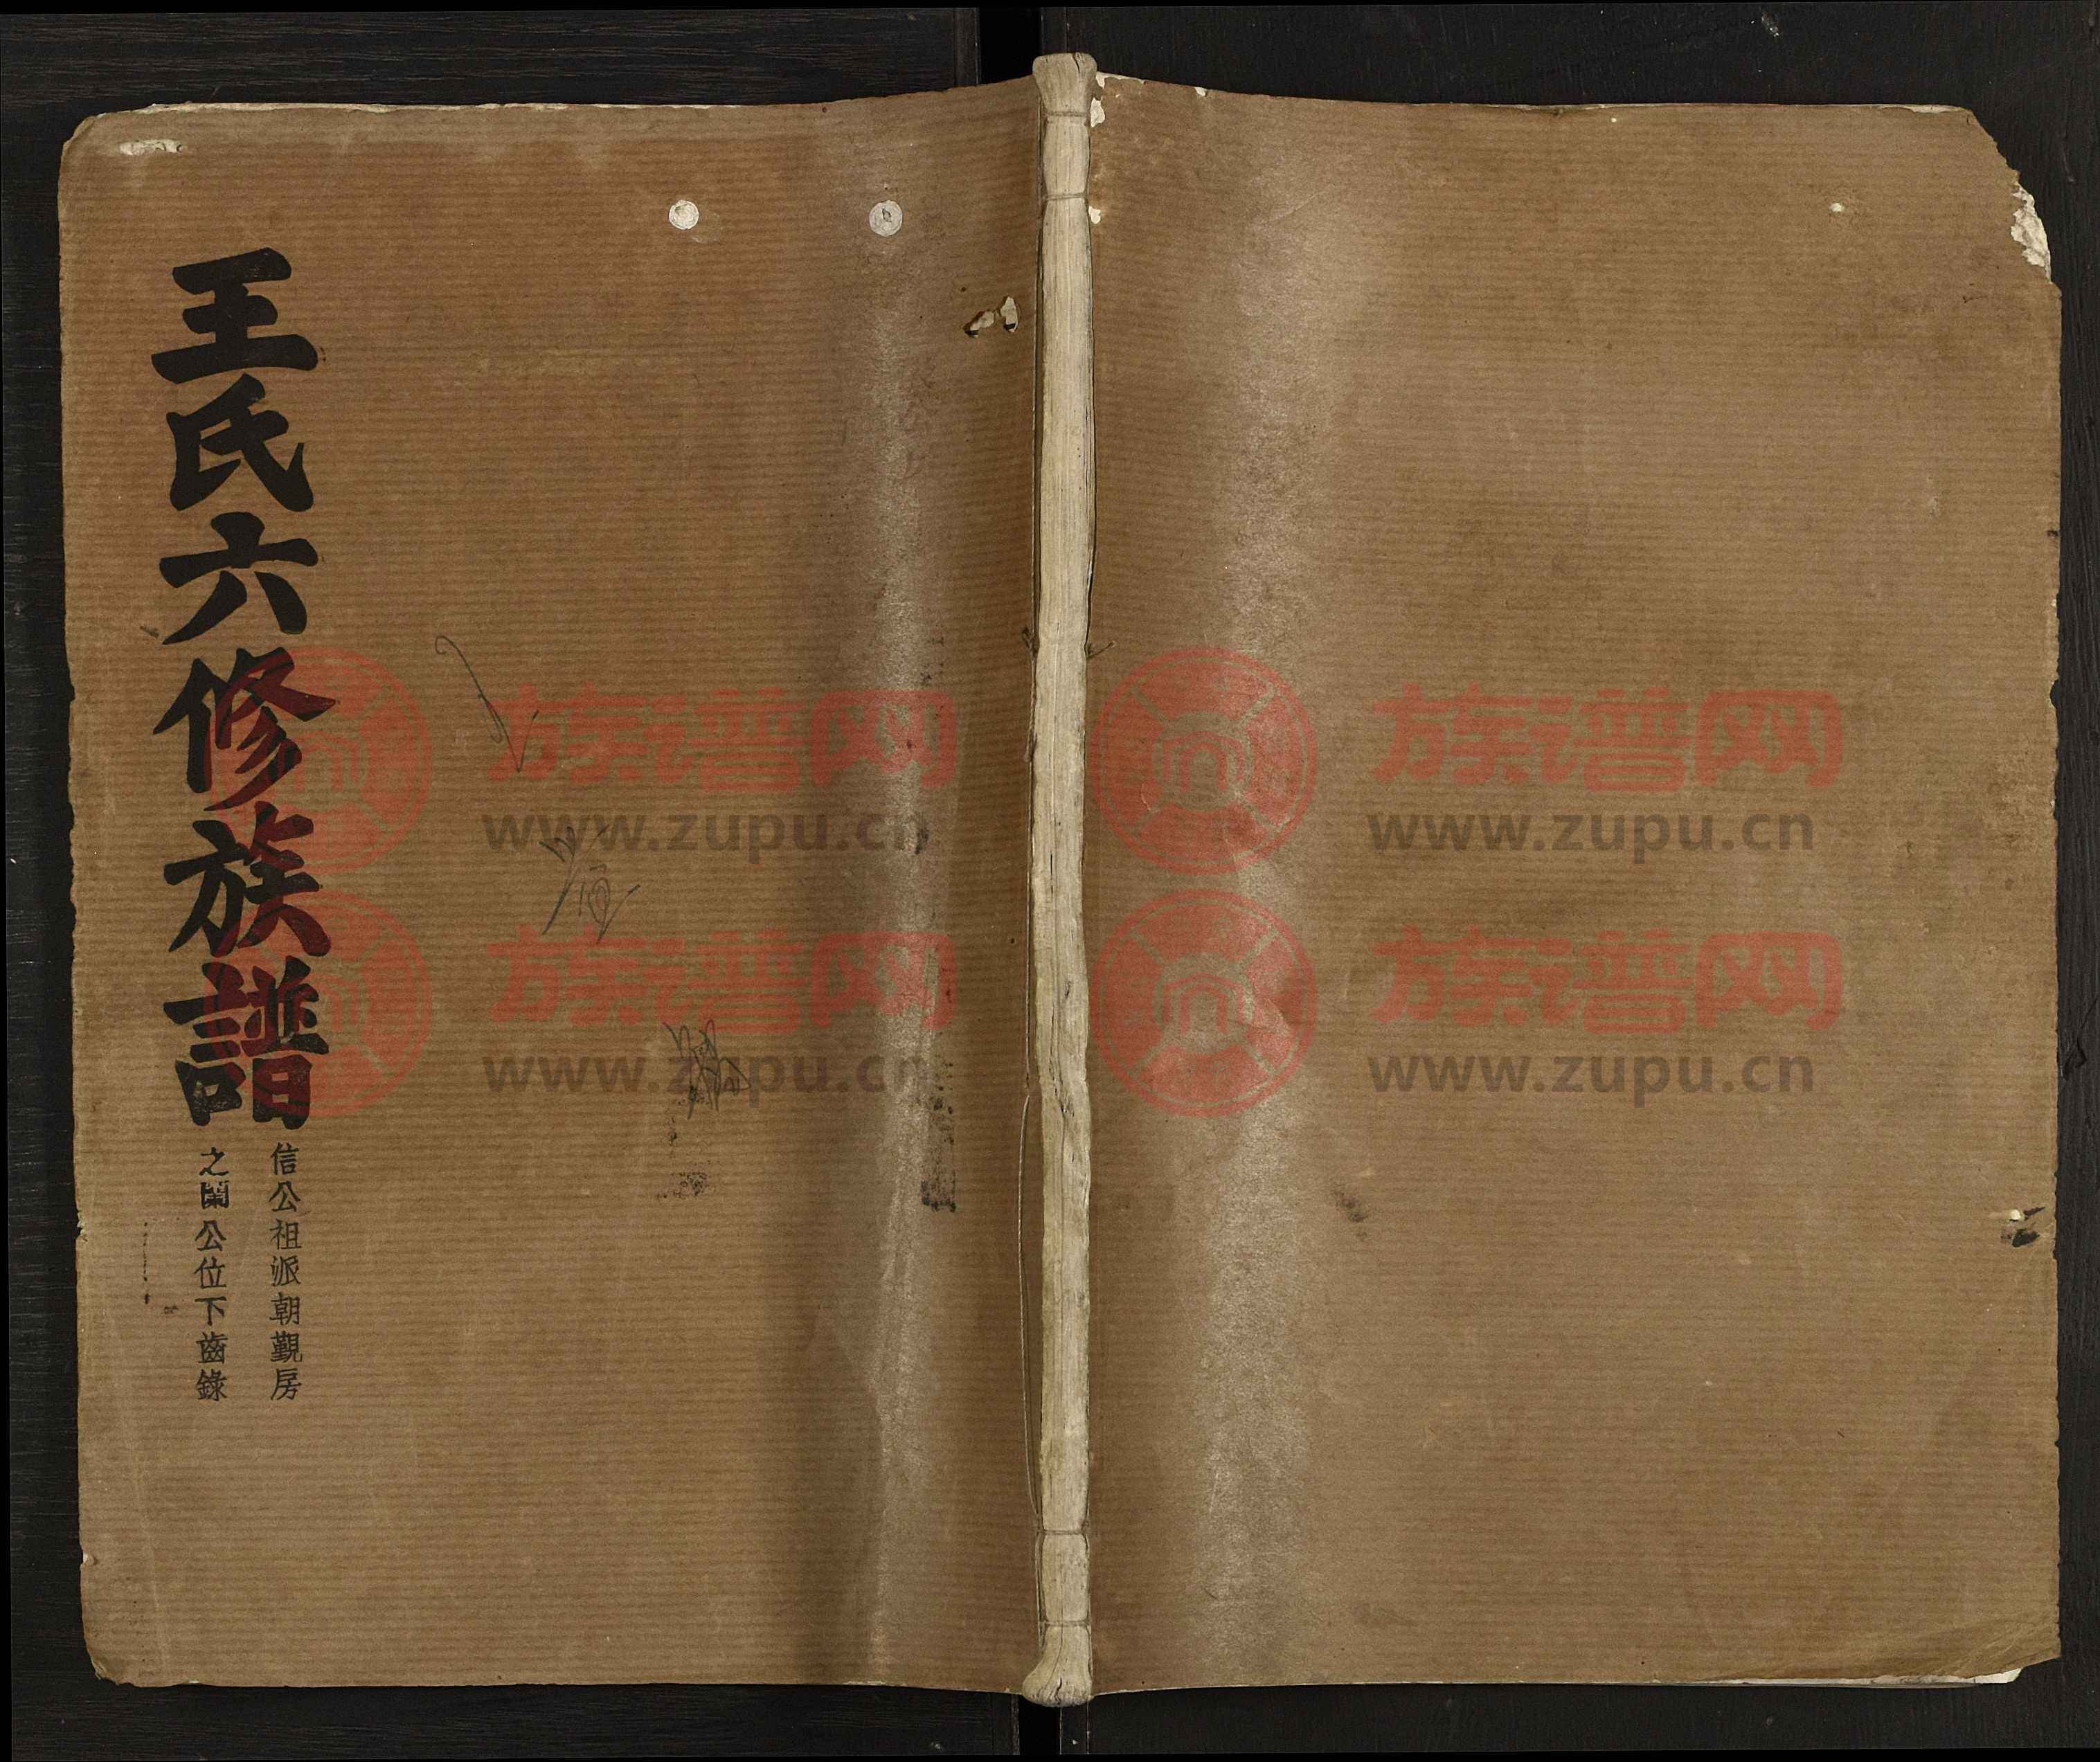 王氏六修族譜
信公祖派朝覲房
之蘭公位下齒錄
族谱网
www.zupu.cn
族谱网
www.zupu.cn
族谱网
www.zupu.cn
族谱网
www.zupu.cn